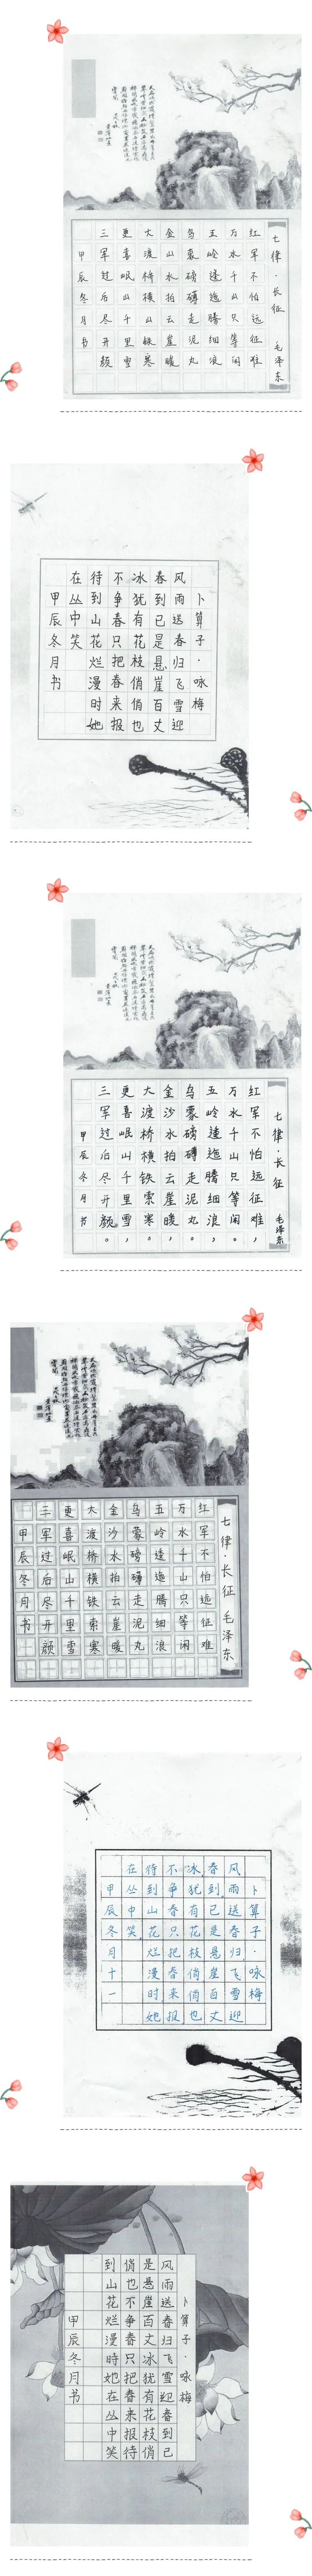 七律·长征 毛泽东
红军不怕远征难
万水千山只等闲
五岭逶迤腾细浪
乌蒙磅礴走泥丸
金山水拍云崖暖
大渡桥横山 寒
更喜岷山千里雪
三军过后尽开颜
甲辰冬月书
卜算子·咏梅
风雨送春归飞雪迎
春到已是悬崖百丈
冰犹有花枝俏俏也
不争春只把春来报
待到山花烂漫时她
在丛中笑
甲辰冬月书
七律·长征 毛泽东
红军不怕远征难，
万水千山只等闲。
五岭逶迤腾细浪，
乌蒙磅礴走泥丸。
金沙水拍云崖暖，
大渡桥横铁索寒。
更喜岷山千里雪，
三军过后尽开颜。
甲辰冬月书
七律·长征 毛泽东
红军不怕远征难
万水千山只等闲
五岭逶迤腾细浪
乌蒙磅礴走泥丸
金沙水拍云崖暖
大渡桥横铁索寒
更喜岷山千里雪
三军过后尽开颜
甲辰冬月书
卜算子·咏梅
风雨送春归飞雪迎
春到已是悬崖百丈
冰犹有花枝俏俏也
不争春只把春来报
待到山花烂漫时她
在丛中笑
甲辰冬月十一
卜算子·咏梅
风雨送春归飞雪迎春到已
是悬崖百丈冰犹有花枝俏
俏也不争春只把春来报待
到山花烂漫時她在丛中笑
甲辰冬月书